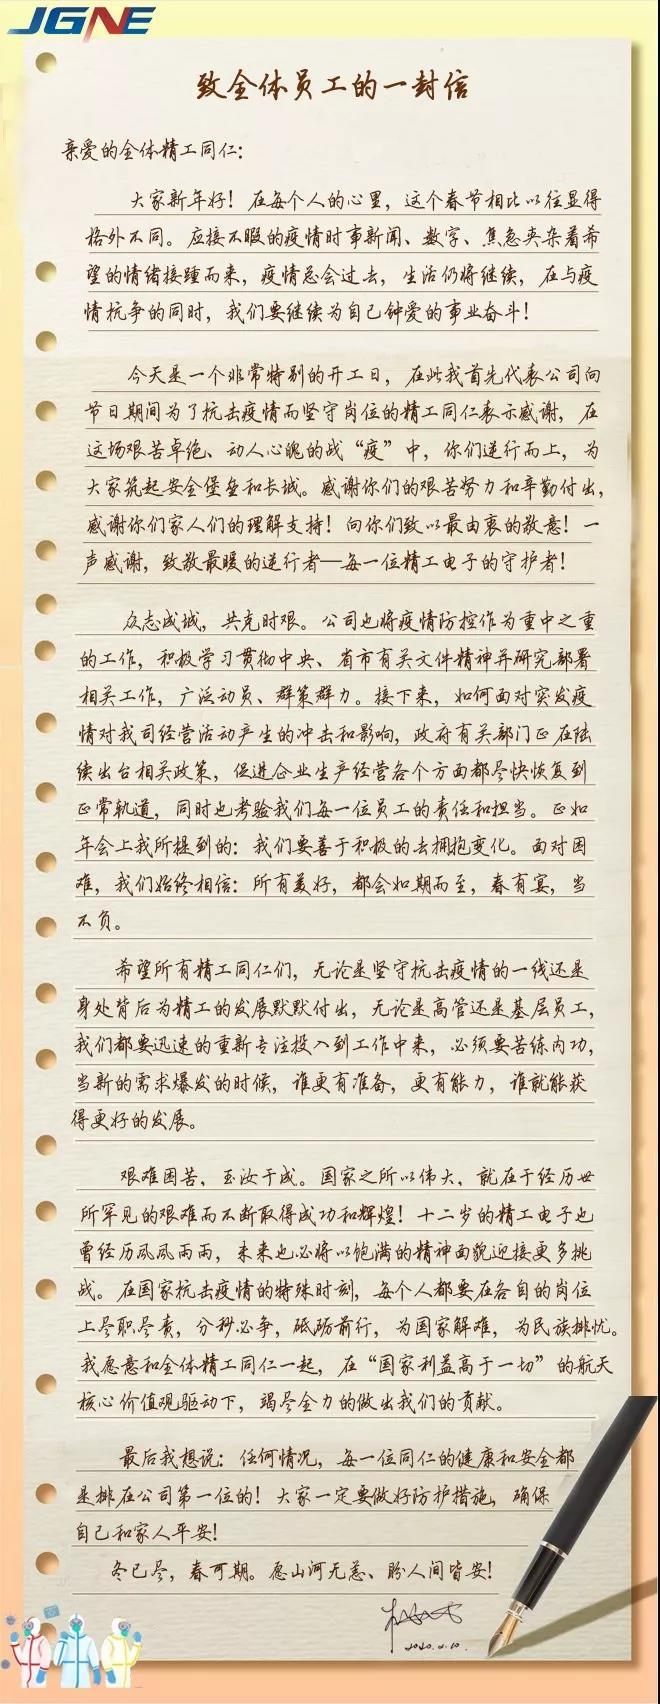 JGNE
致全体员工的一封信
亲爱的全体精工同仁：
大家新年好！在每个人的心里，这个春节相比以往显得
格外不同。应接不暇的疫情时事新闻、数字、焦急夹杂着希
望的情绪接踵而来，疫情总会过去，生活仍将继续，在与疫
情抗争的同时，我们要继续为自己钟爱的事业奋斗！
今天是一个非常特别的开工日，在此我首先代表公司向
节日期间为了抗击疫情而坚守岗位的精工同仁表示感谢，在
这场艰苦卓绝、动人心魄的战“疫”中，你们逆行而上，为
大家筑起安全堡垒和长城。感谢你们的艰苦努力和辛勤付出，
感谢你们家人们的理解支持！向你们致以最由衷的敬意！一
声感谢，致敬最暖的逆行者—每一位精工电子的守护者！
众志成城，共克时艰。公司也将疫情防控作为重中之重
的工作，积极学习贯彻中央、省市有关文件精神并研究部署
相关工作，广泛动员、群策群力。接下来，如何面对突发疫
情对我司经营活动产生的冲击和影响，政府有关部门正在陆
续出台相关政策，促进企业生产经营各个方面都尽快恢复到
正常轨道，同时也考验我们每一位员工的责任和担当。正如
年会上我所提到的：我们要善于积极的去拥抱变化。面对困
难，我们始终相信：所有美好，都会如期而至，春有宴，当
不负。
希望所有精工同仁们，无论是坚守抗击疫情的一线还是
身处背后为精工的发展默默付出，无论是高管还是基层员工，
我们都要迅速的重新专注投入到工作中来，必须要苦练内功，
当新的需求爆发的时候，谁更有准备，更有能力，谁就能获
得更好的发展。
艰难困苦，玉汝于成。国家之所以伟大，就在于经历世
所罕见的艰难而不断取得成功和辉煌！十二岁的精工电子也
曾经历风风雨雨，未来也必将以饱满的精神面貌迎接更多挑
战。在国家抗击疫情的特殊时刻，每个人都要在各自的岗位
上尽职尽责，分秒必争，砥砺前行，为国家解难，为民族排忧。
我愿意和全体精工同仁一起，在“国家利益高于一切”的航天
核心价值观驱动下，竭尽全力的做出我们的贡献。
最后我想说：任何情况，每一位同仁的健康和安全都
是排在公司第一位的！大家一定要做好防护措施，确保
自己和家人平安！
冬已尽，春可期。愿山河无恙、盼人间皆安！
2020.2.10.